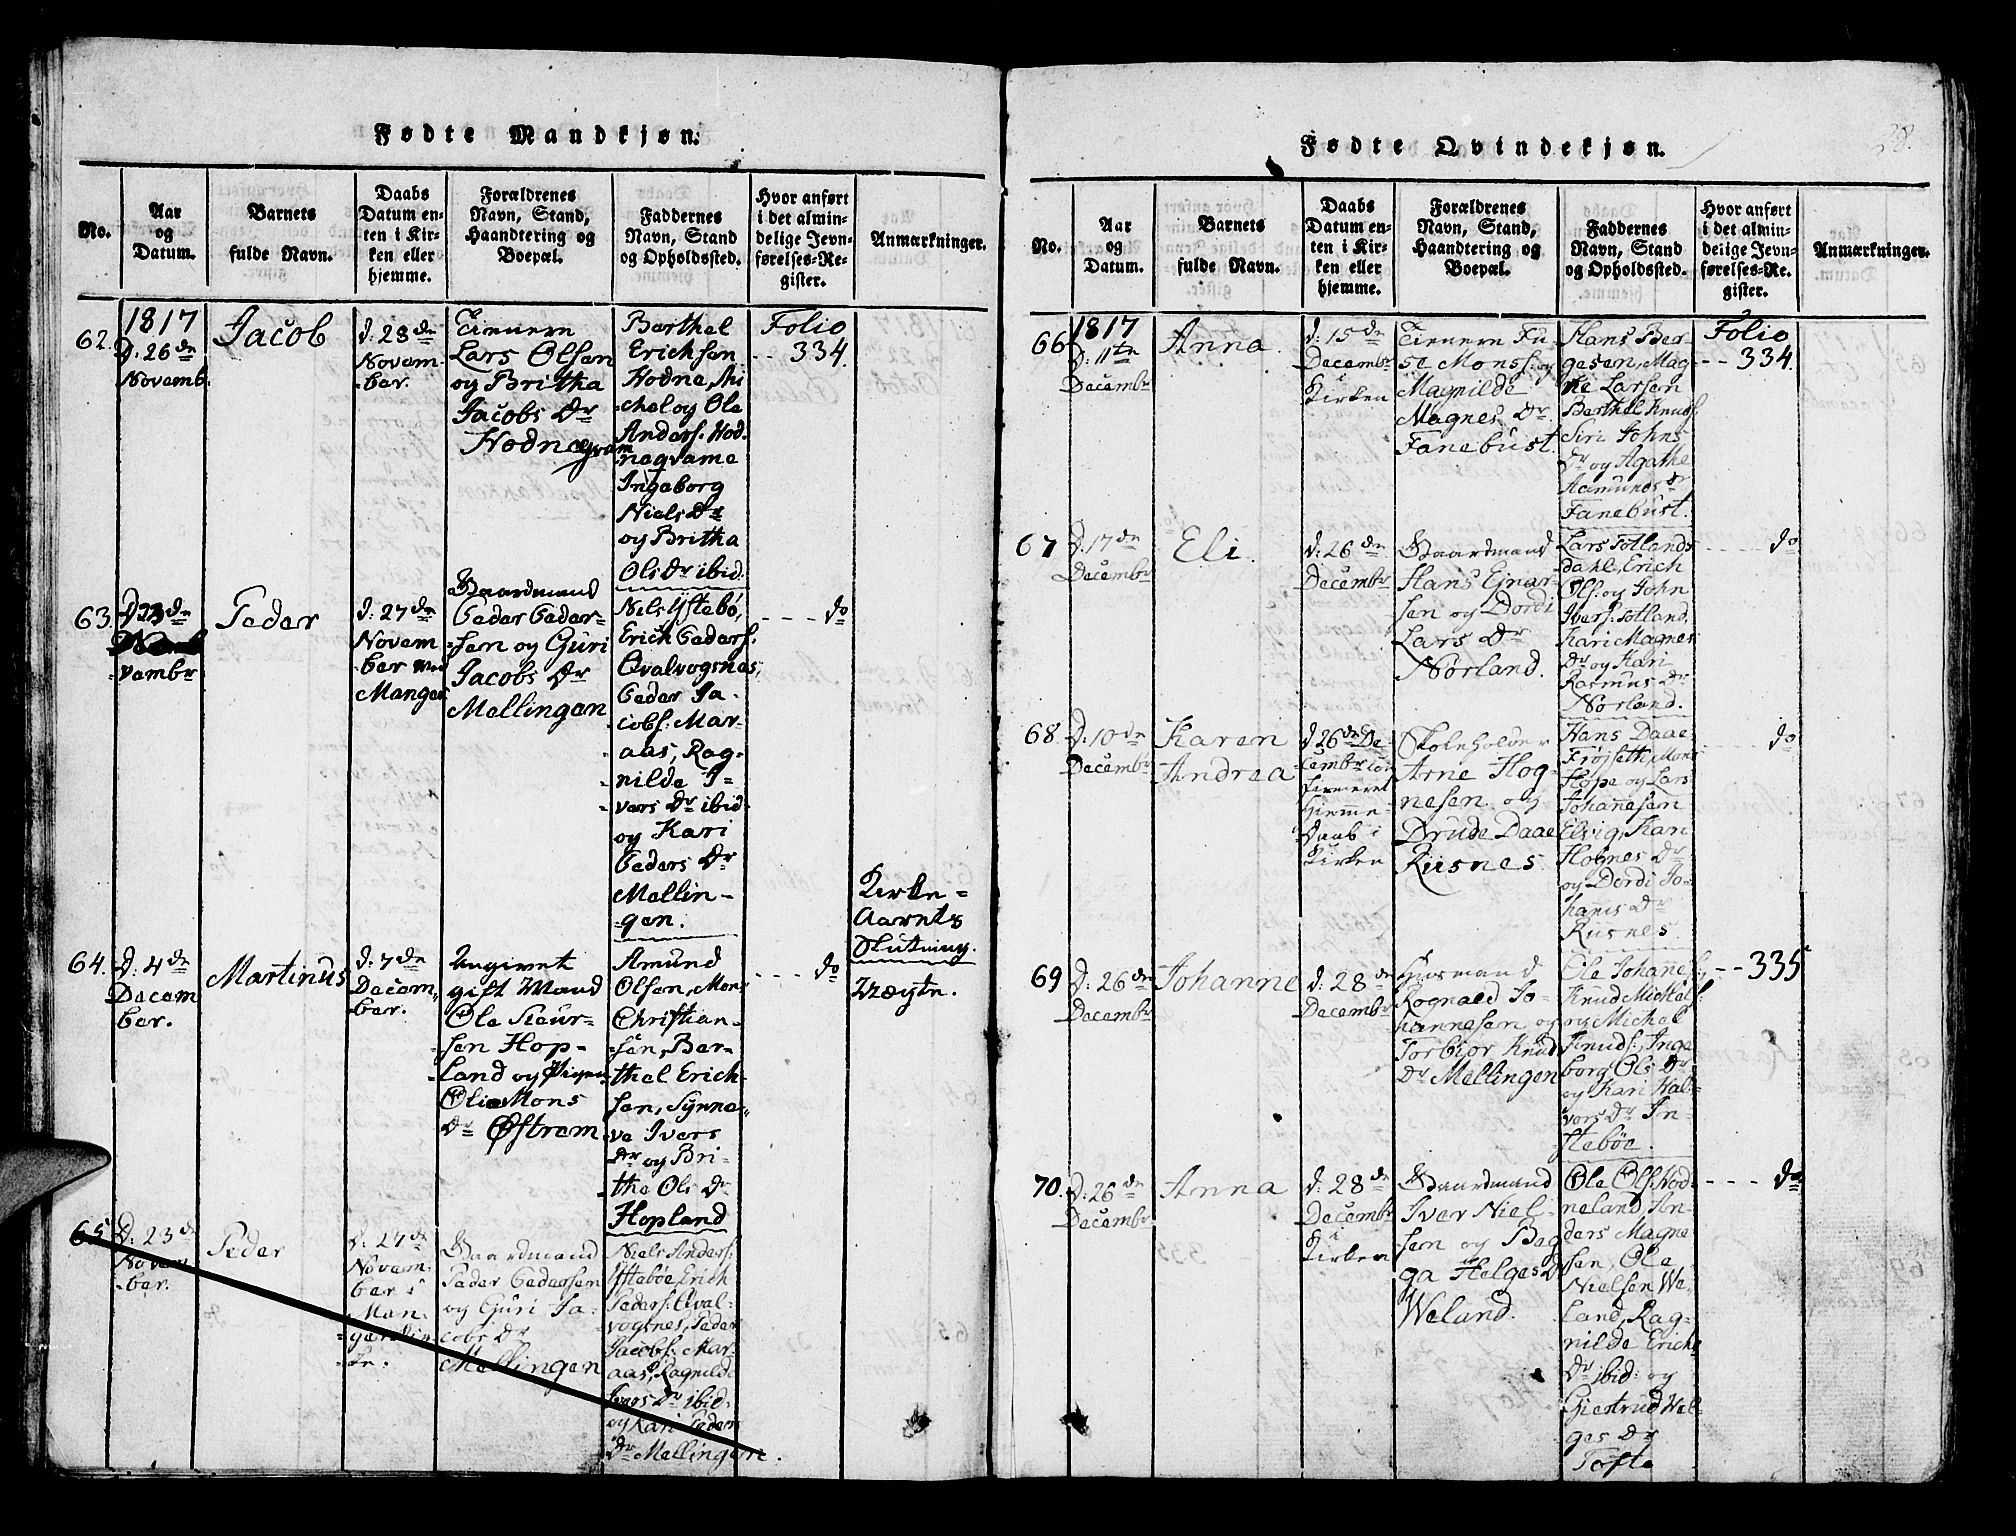 Fødte Mandkjøn.
No.
Aar
og
Datum.
Barnets
fulde Navn.
Daabs
Datum en-
ten i Kir-
ken eller
hjemme.
Forældrenes
Navn, Stand,
Haandtering og
Boepæl.
Faddernes
Navn, Stand
og Opholdssted.
Hvor anført
i det almin-
delige Jevn-
førelses-Re-
gister.
Anmærkninger.
62.
1817
D: 26de
Novemb.
Jacob
d: 28de
Novem-
ber.
Tienern
Lars Olsen
og Britha
Jacobs Dr
Hodneqvam
Berthel
Erichsen
Hodne, Mi
chel og Ole
Anders: Hod-
neqvame
Ingeborg
Niels Dr
og Britha
Ols Dr ibid:
Folio
-- 334.
63.
D: 23de
vembr
Peder
d: 27de
Novem
ber
Manger
Gaardmand
Peder Peder-
sen og Guri
Jacobs Dr
Mellingen
Nels Ystebø,
Erich Peders:
Qvalvogsnes,
Peder Ja-
cobs: Mar-
aas, Rag-
nilde I-
vers Dr ibid
og Kari
Peders Dr
Mellin-
gen.
---- do
Kirke-
Aarets
Slutning.
64.
D: 4de
Decem
ber.
Martinus
d: 7de
Decem-
ber.
Angivet
gift Mand
Ole Siur-
sen Hop-
land og Pigen
Olie Mons
Dr Østrem
Amund
Olsen, Mons
Christian-
sen, Ber-
thel Erich-
sen, Synne-
ve Ivers
Dr og Bri-
the Ols Dr
Hopland
---- do
65
D: 23de
Novem
ber.
Peder
d: 27de
Novem-
ber i
Man-
ger
Gaardmand
Peder Pedersen
og Guri Ja-
cobs Dr
Mellingen
Niels Anders:
Ystebøe, Erich
Peders: Qval-
vogsnes, Peder
Jacobs: Mar-
aas, Ragnilde
Ivers Dr ibid:
og Kari Peders
Dr Mellingen.
Fødte Qvindekjøn.
28.
No.
Aar
og
Datum.
Barnets
fulde Navn.
Daabs
Datum en-
ten i Kir-
ken eller
hjemme.
Forældrenes
Navn, Stand,
Haandtering og
Boepæl.
Faddernes
Navn, Stand
og Opholdssted.
Hvor anført
i det almin-
delige Jevn-
førelses-Re-
gister.
Anmærkninger.
66
1817
D: 11te
Decembr
Anna
d: 15de
Decembr
Kirken
Tienern
Mons: og
Magnilde
Magnes Dr
Fanebust.
Hans Ber-
gesen, Mag-
ne Larsen
Berthel Knuds:
Siri Johns
Dr og Agathe
Aamunds Dr
Fanebust.
Folio
-- 334.
67
D: 17de
Decembr
Eli
d: 26de
Decembr
Gaardmand
Hans Einar-
sen og Dordi
Lars Dr
Norland.
Lars Totlands
dahl, Erich
Ols: og John
Ivers: Totland,
Kari Magnes
Dr og Kari
Rasmus Dr
Norland.
---- do
68.
D: 10de
Decembr
Karen
Andrea
d 26de De
cembr con
firmeret
Hjemme-
Daab i
Kirken
Skoleholder
Arne Hog-
nesen og
Drude Daae
Risnes
Hans Daae
Frøjseth, Mons
Hope og Lars
Johannesen
Elvig, Kari
Hognes Dr
og Dordi Jo-
hanes Dr
Risnes
---- do
69
D: 26de
Decembr
Johanne
d: 28de
Decembr
Huusmand
Rognald Jo-
hannesen og
Torbior Knud
Dr Mellingen
Ole Johanes:,
Knud Michel-
og Michel
Knuds:, Inge
borg Ols Dr
og Kari Hal-
vors Dr In-
stebøe.
-- 335
70.
D: 26de
Decembr
Anna
d: 28de
Decembr
Kirken
Gaardmand
Iver Niel-
sen og Bag
ga Helges D
Weland.
Ole Ols: Hod-
neland, An-
ders Magne
sen, Ole
Nielsen We-
land, Rag-
nilde Erichs
Dr ibid: og
Giertrud Hel-
ges Dr
Tofte
---- do